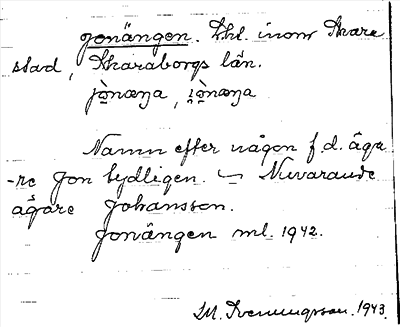 Jonängen. Lhl. inom Skara
stad, Skaraborgs län.
Namn efter någon f.d. äga
-re Jon tydligen. – Nuvarande
ägare Johansson.
Jonängen ml. 1942.
M. Svenungsson. 1943.